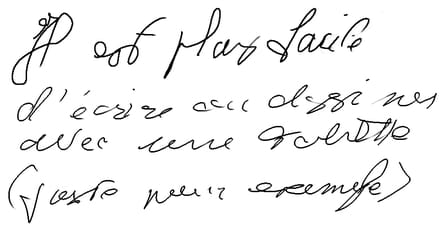 Il est plus facile
d'écrire ou dessiner
avec une tablette
(juste pour exemple)